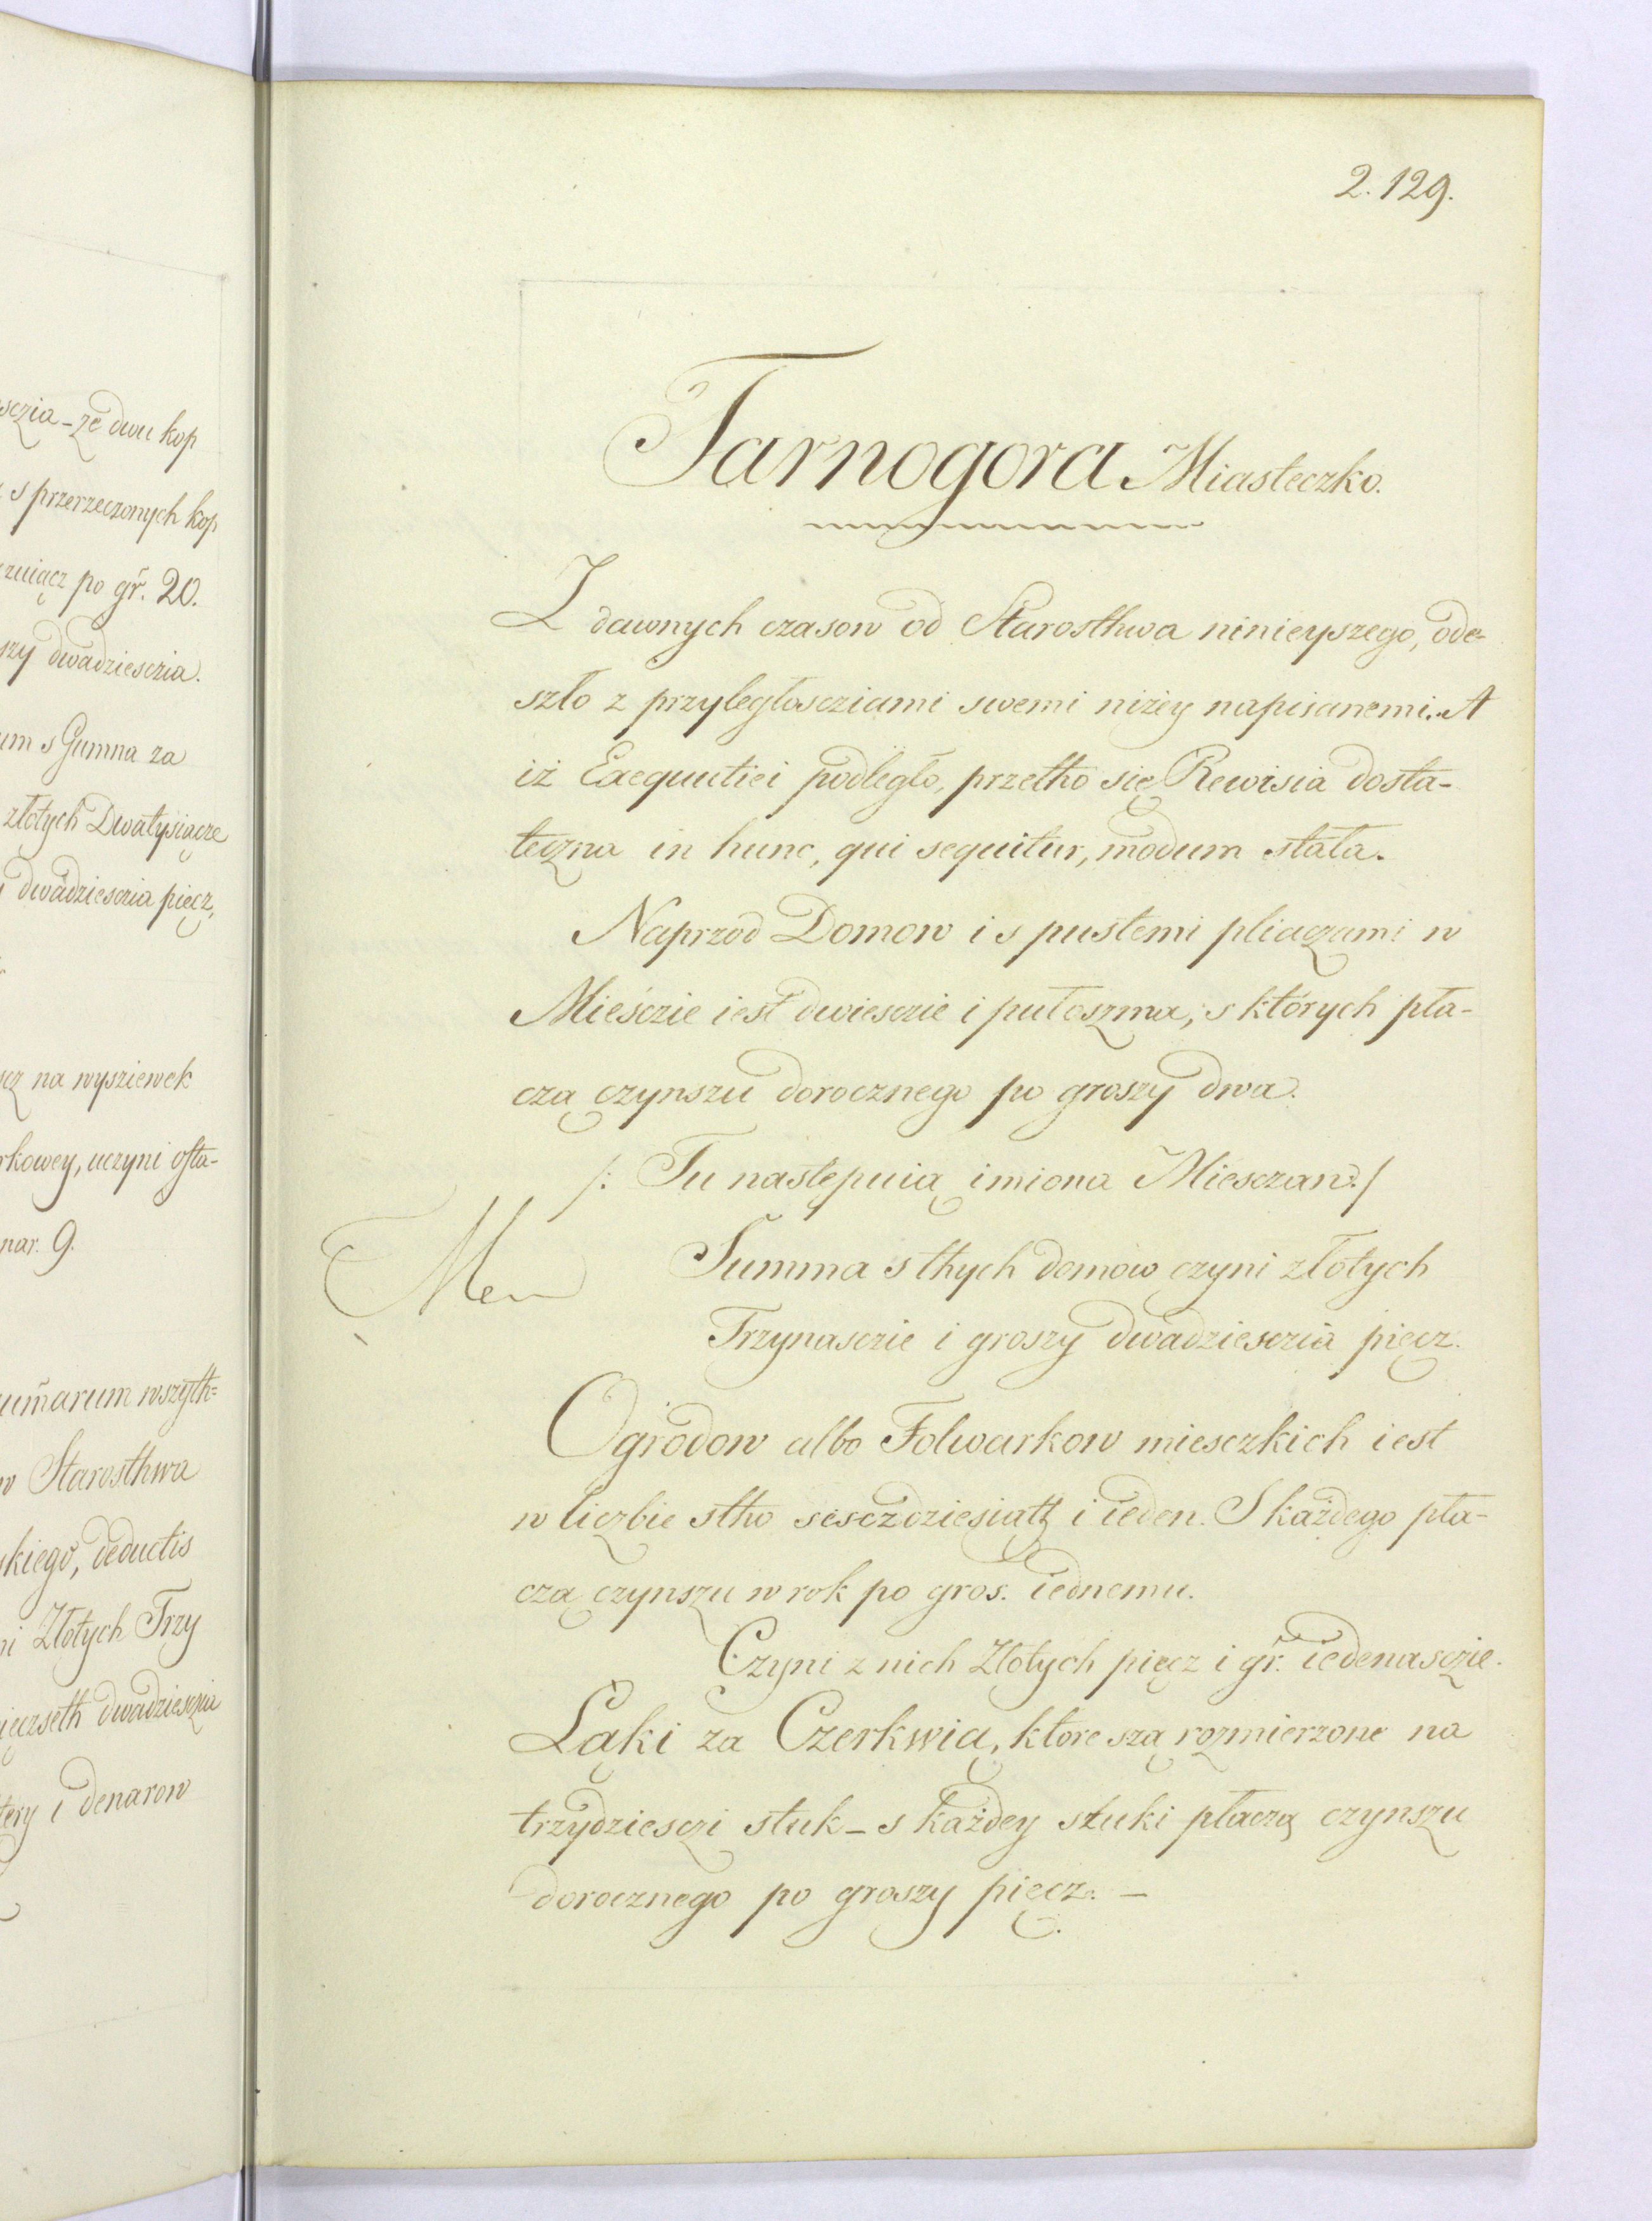 sczia - ze dwu kop
s przerzeczonych kop
po gr. 20.
szy dwadziesczia.
um s Gumna za
złotych Dwatysiącze
dwadziesczia pięcz,
na wysziewek
rkowey, uczyni osta-
nar. 9.
um̃arum wszyth=
w Starosthwa
skiego, deductis
ni Złotych Trzy
ięczseth dwadziesczia
tery i denarow
2. 129.
Tarnogora Miasteczko.
Z dawnych czasow od Starosthwa ninieyszego, ode-
szło z przyległoscziami swemi niżey napisanemi. A
iż Exequutiei podległo, przetho się Rewisia dosta-
teczna in hunc, qui sequitur, modum stała.
Naprzod Domow i s pustemi pliaczami w
Mieśczie iest dwiesczie i pułoszma, s których pła-
czą czynszu dorocznego po groszy dwa.
/: Tu następuią imiona Miesczan :/
Summa s thych domow czyni złotych
Trzynasczie i groszy dwadziesczia pięcz.
Ogrodow albo Folwarkow miesczkich iest
w liczbie stho sesczdziesiątħ i ieden. S każdego pła-
czą czynszu w rok po gros. iednemu.
Czyni z nich Złotych pięcz i gr. iedenasczie.
Łąki za Czerkwią, ktore szą rozmierzone na
trzydziesczi stuk - s każdey stuki płaczą czynszu
dorocznego po groszy pięcz. -